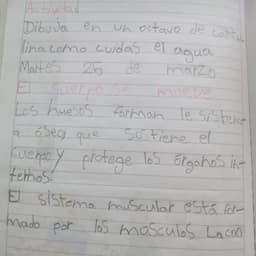 Actividad
Dibuja en un octavo de cartu
lina como cuidas el agua
Martes 25 de marzo
El cuerpo se mueve
Los huesos forman le sisteme
a óseo que sostiene el
cuerpo y protege los órganos in-
ternos
El sistema muscular está for-
mado por los mosculos La con